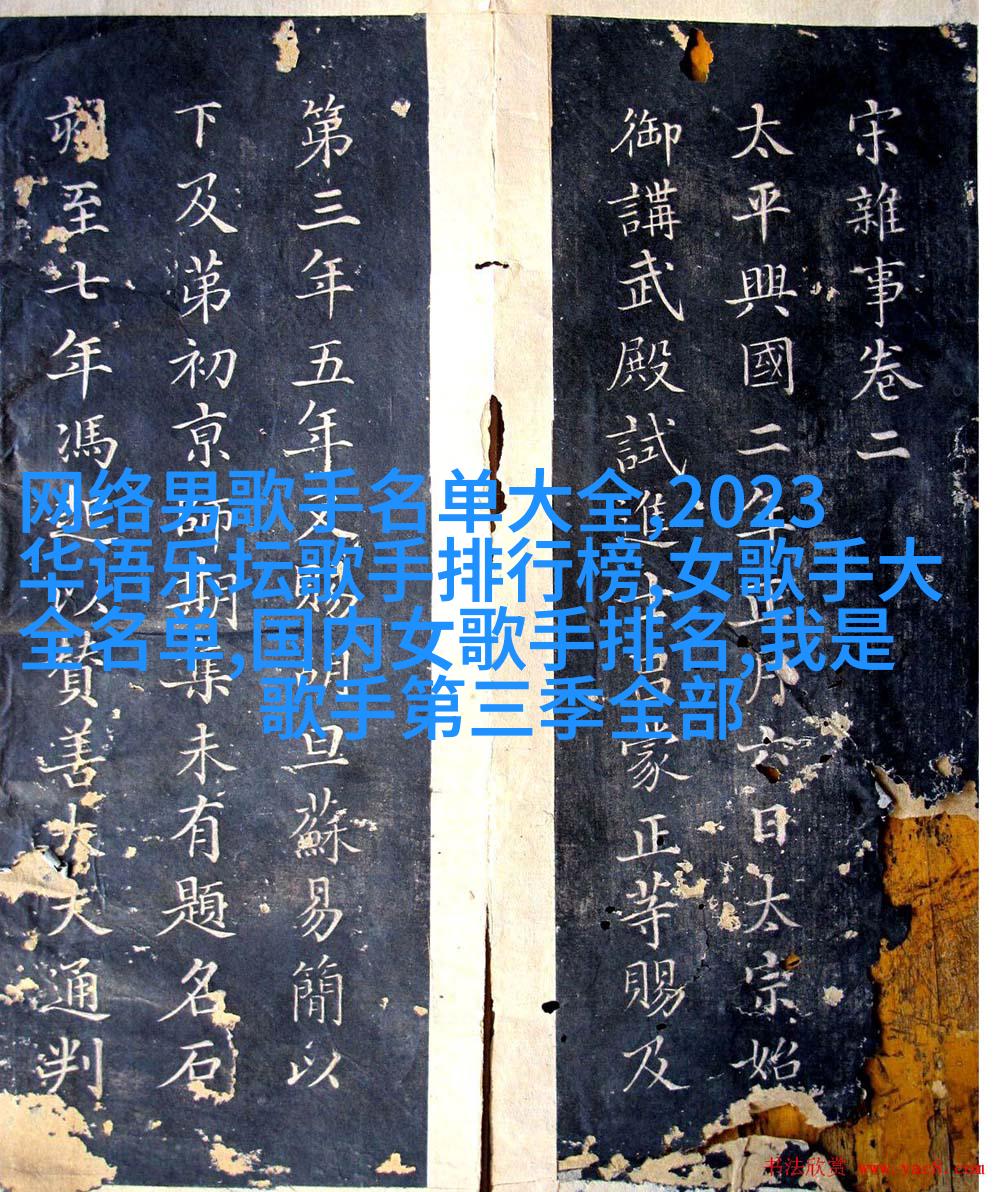 宋雜事卷二
太平興國二年正月六日太宗始
御講武殿試進士呂蒙正等賜及
第三年五年又賜明旦蘇易簡以
下及第初京師期集未有題名石
至七年馮拯以賛善大夫通判
网络男歌手名单大全,2023
华语乐坛歌手排行榜,女歌手大
全名单,国内女歌手排名,我是
歌手第三季全部
书法欣赏 www.yac8.com